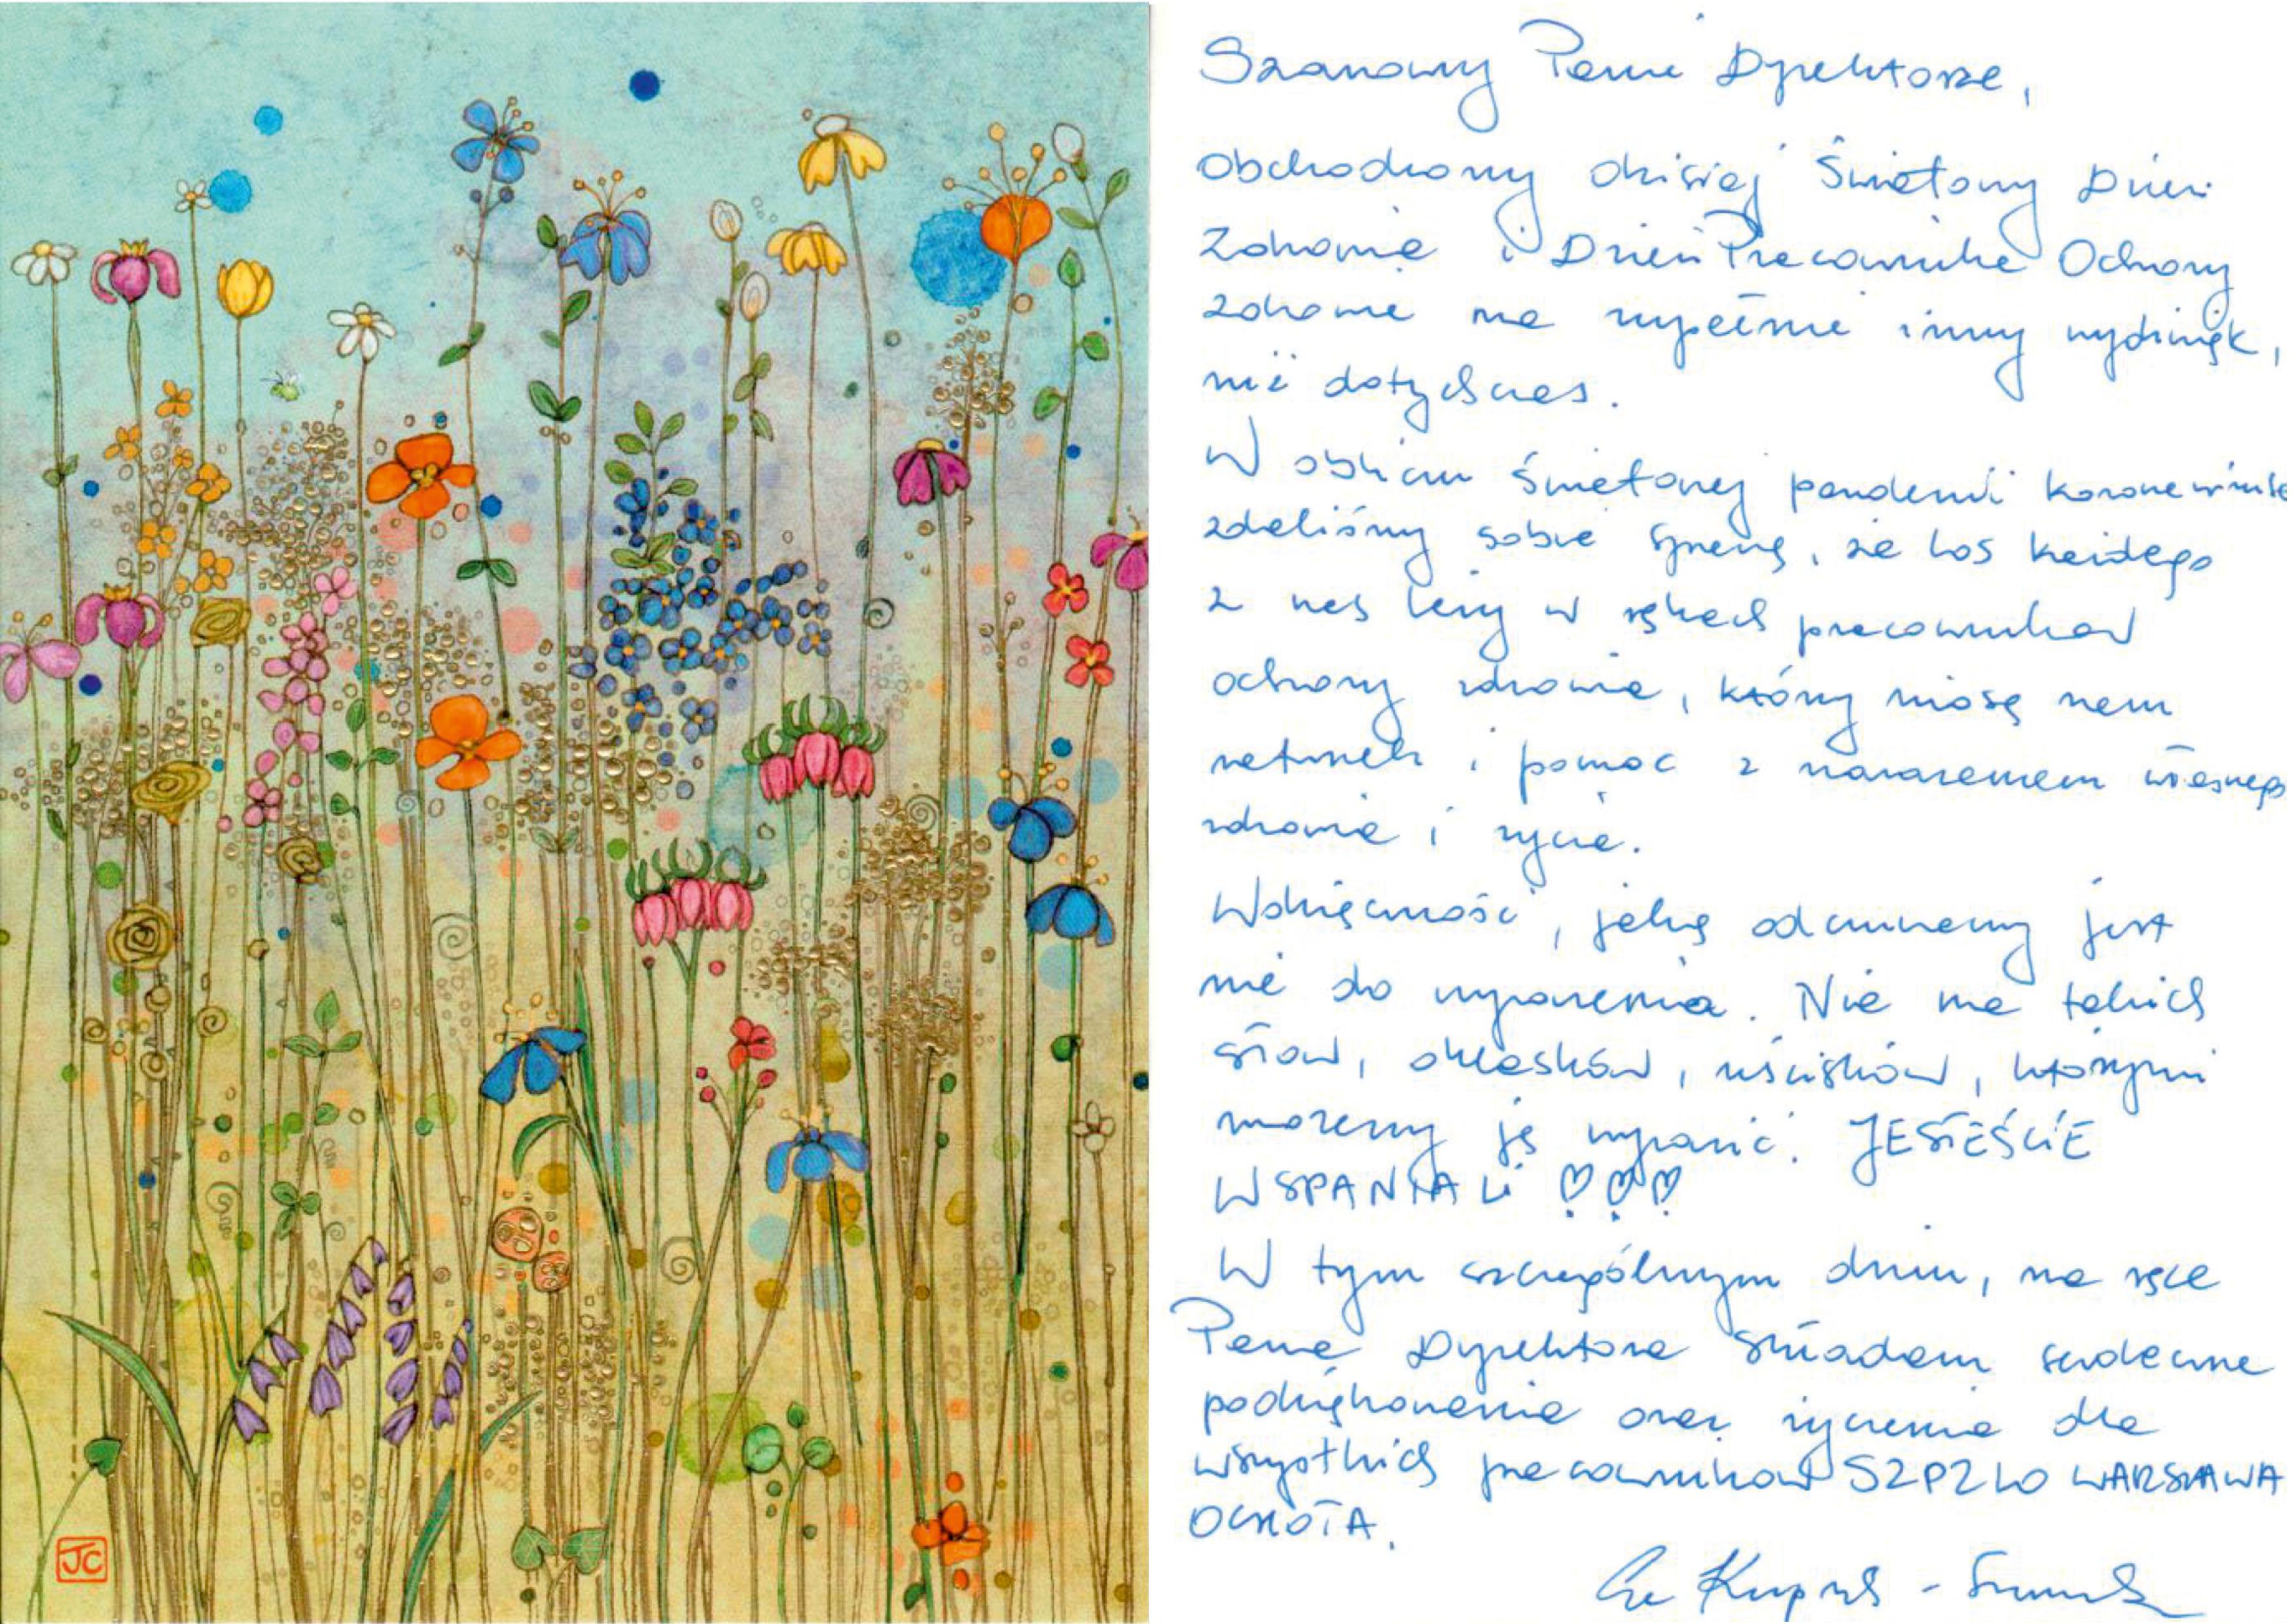 JC
Szanowny Panie Dyrektorze,
Obchodzony dzisiaj Światowy Dzień
Zdrowia i Dzień Pracownika Ochrony
zdrowia ma zupełnie inny wydźwięk,
niż dotychczas.
W obliczu światowej pandemii koronawirusa
zdaliśmy sobie sprawę, że los każdego
z nas leży w rękach pracowników
ochrony zdrowia, którzy niosą nam
ratunek i pomoc z narażeniem własnego
zdrowia i życia.
Wdzięczność, jaką odczuwamy jest
nie do wyrażenia. Nie ma takich
słów, oklasków, uścisków, którymi
możemy ją wyrazić. JESTEŚCIE
WSPANIALI ♡♡♡
W tym szczególnym dniu, na ręce
Pana Dyrektora składam serdeczne
podziękowania oraz życzenia dla
wszystkich pracowników SZPZLO WARSZAWA
OCHOTA.